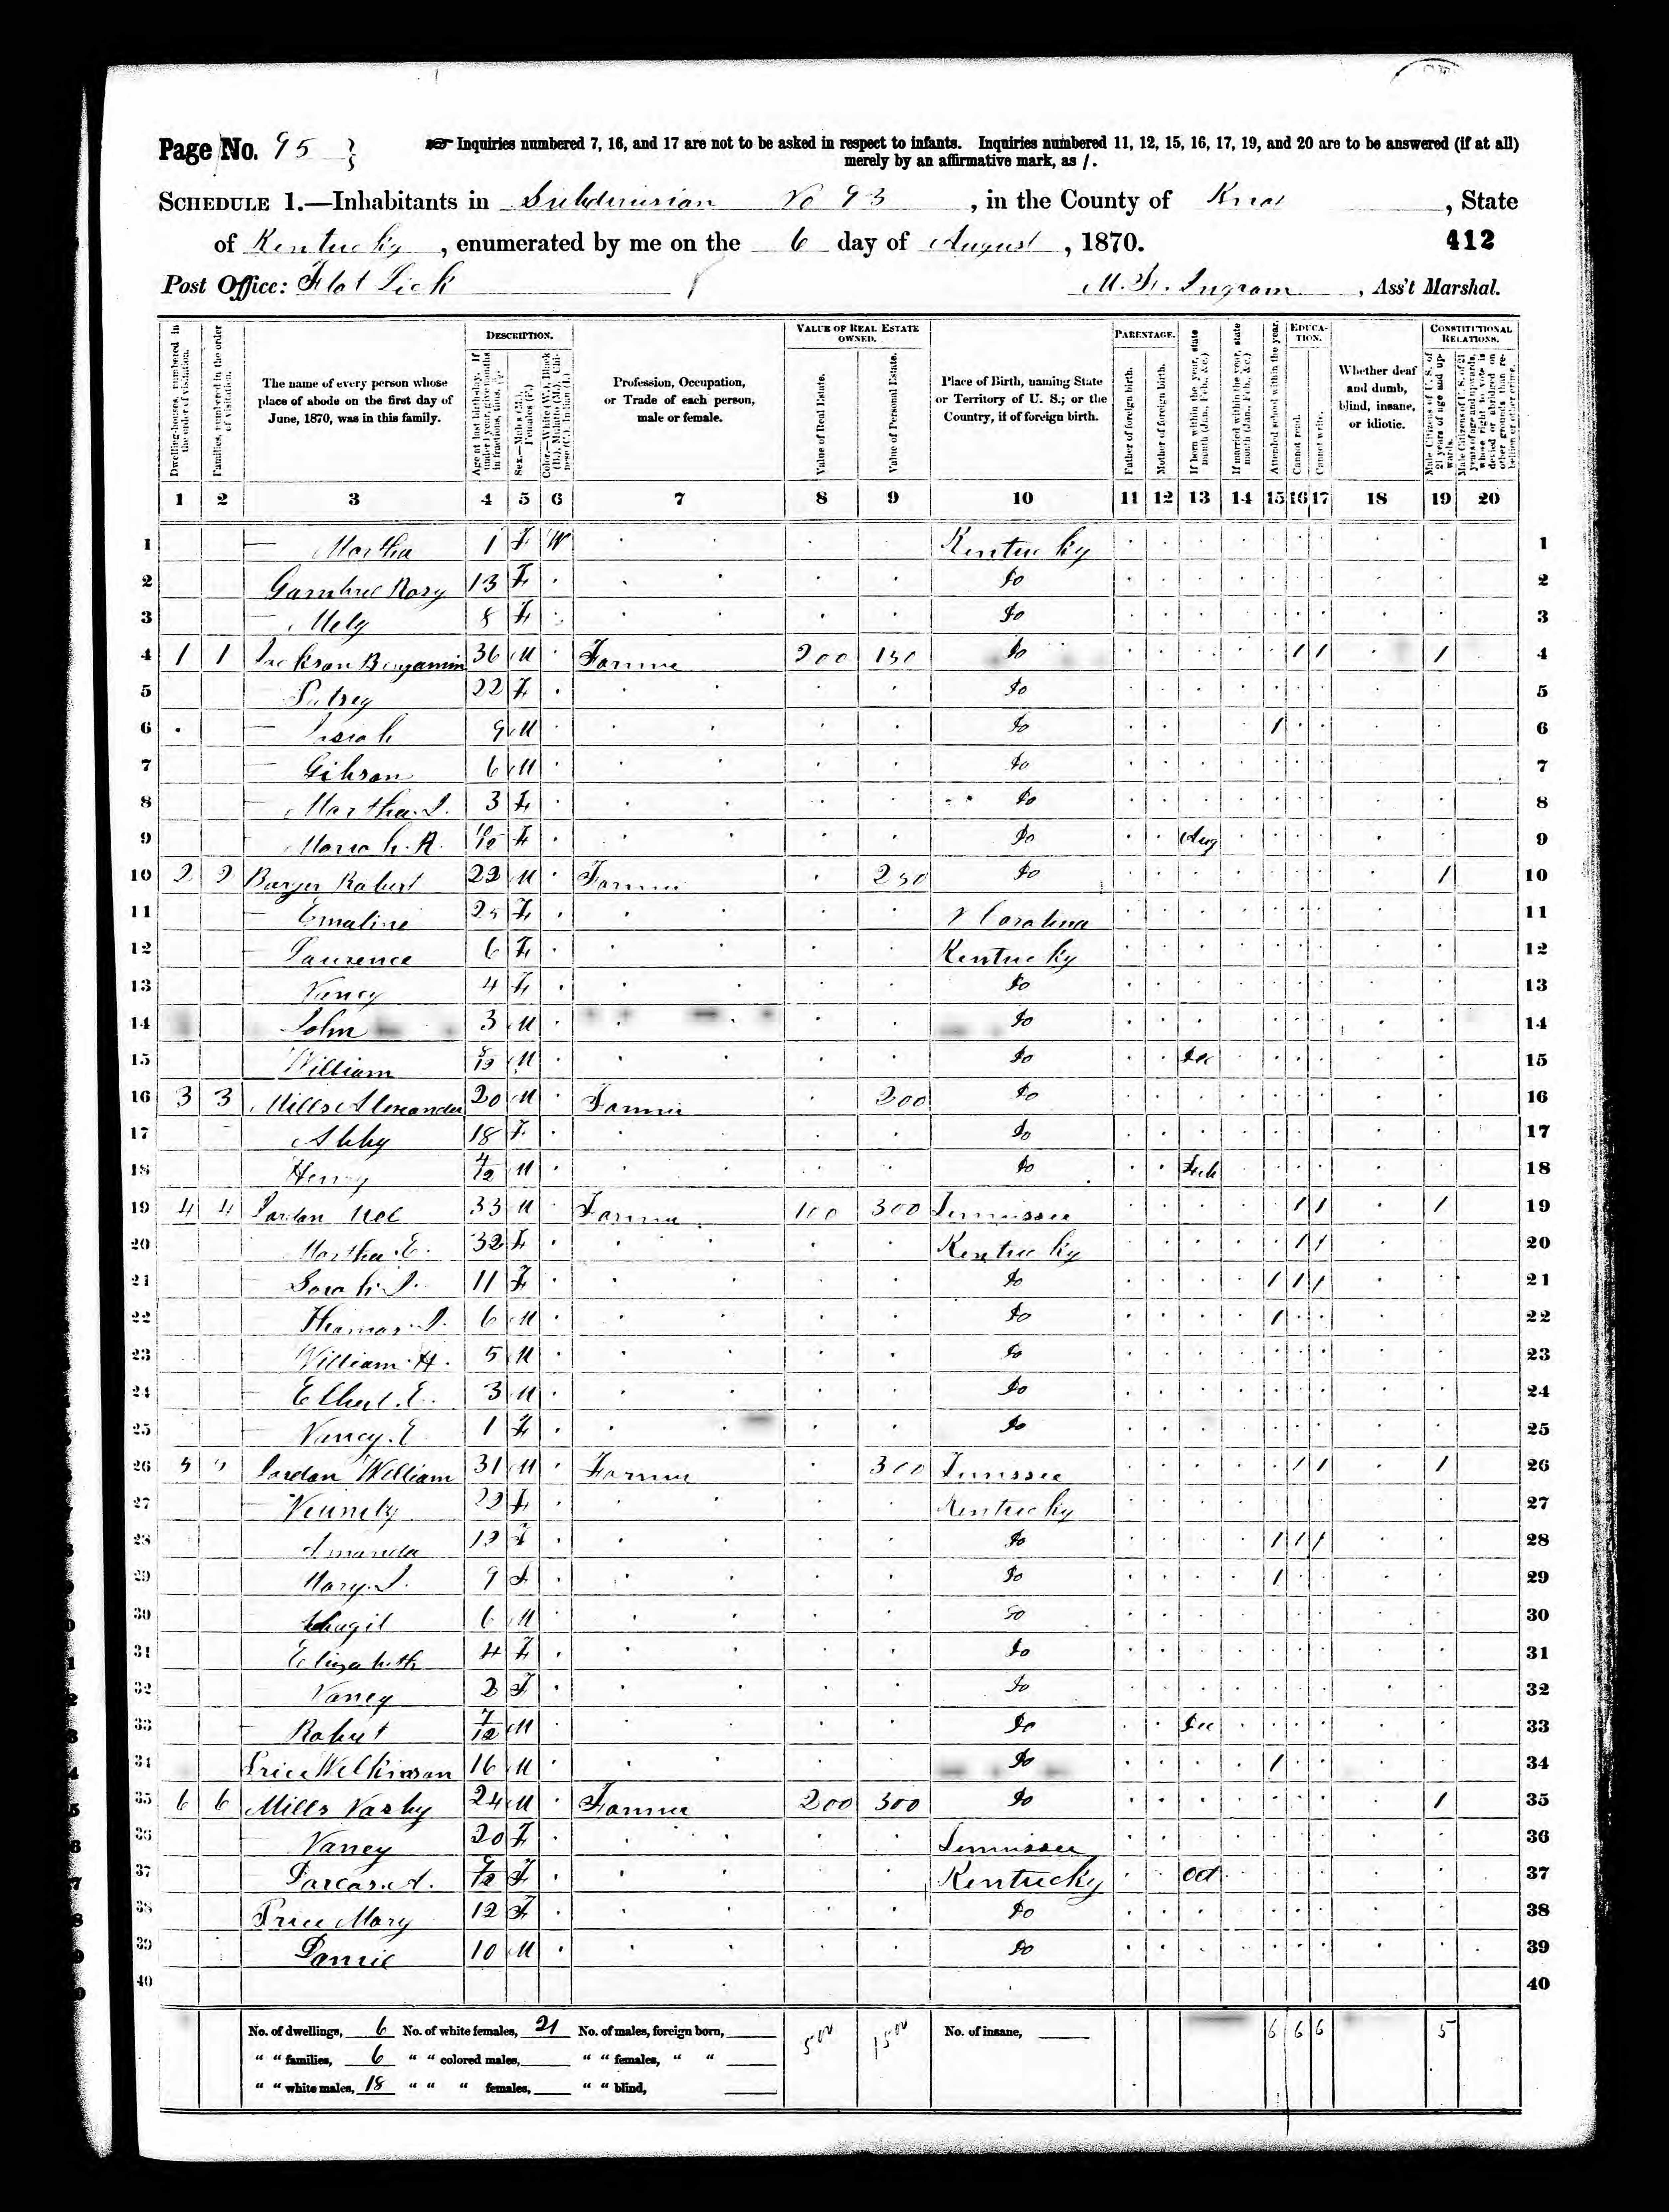 Page No. 95
Inquiries numbered 7, 16, and 17 are not to be asked in respect to infants. Inquiries numbered 11, 12, 15, 16, 17, 19, and 20 are to be answered (if at all)
merely by an affirmative mark, as /.
SCHEDULE 1.—Inhabitants in Subdivision No 93, in the County of Knox, State
of Kentucky, enumerated by me on the 6 day of August, 1870. 412
Post Office: Flat Lick M. F. Ingram, Ass't Marshal.
Dwelling-houses, numbered in the order of visitation.
Families, numbered in the order of visitation.
The name of every person whose place of abode on the first day of June, 1870, was in this family.
DESCRIPTION.
Age at last birth-day. If under 1 year, give months in fractions, thus, 3/12
Sex.—Males (M.), Females (F.)
Color.—White (W.), Black (B.), Mulatto (M.), Chinese (C.), Indian (I.)
Profession, Occupation, or Trade of each person, male or female.
VALUE OF REAL ESTATE OWNED.
Value of Real Estate.
Value of Personal Estate.
Place of Birth, naming State or Territory of U. S.; or the Country, if of foreign birth.
PARENTAGE.
Father of foreign birth.
Mother of foreign birth.
If born within the year, state month (Jan., Feb., &c.)
If married within the year, state month (Jan., Feb., &c.)
Attended school within the year.
EDUCATION.
Cannot read.
Cannot write.
Whether deaf and dumb, blind, insane, or idiotic.
CONSTITUTIONAL RELATIONS.
Male Citizens of U. S. of 21 years of age and upwards.
Male Citizens of U. S. of 21 years of age and upwards, whose right to vote is denied or abridged on other grounds than rebellion or other crime.
1 2 3 4 5 6 7 8 9 10 11 12 13 14 15 16 17 18 19 20
1 — Martha 1 F W Kentucky 1
2 Rosy 13 F Do 2
3 — Mely 8 F Do 3
4 1 1 Jackson Benjamin 36 M Farmer 200 150 Do / / / 4
5 — 22 F Do 5
6 — 9 M Do / 6
7 — Gibson 6 M Do 7
8 — Martha. J. 3 F Do 8
9 — 10/12 F Do Aug 9
10 2 2 Robert 22 M Farmer 250 Do / 10
11 — Emaline 25 F N Carolina 11
12 — Laurence 6 F Kentucky 12
13 — Nancy 4 F Do 13
14 — John 3 M Do 14
15 — William M Do Dec 15
16 3 3 Mills Alexander 20 M Farmer 200 Do 16
17 — Abby 18 F Do 17
18 — Henry 4/12 M Do Feb 18
19 4 4 Jordan 33 M Farmer 100 300 Tennessee / / / 19
20 — Martha. E. 32 F Kentucky / / 20
21 — Sarah. J. 11 F Do / / / 21
22 — Thomas. J. 6 M Do / 22
23 — William. H. 5 M Do 23
24 — Elbert. E. 3 M Do 24
25 — Nancy. E 1 F Do 25
26 5 5 Jordan William 31 M Farmer 300 Tenessee / / / 26
27 — F Kentucky 27
28 — Amanda 12 F Do / / / 28
29 — Mary. J. 9 F Do / 29
30 — 6 M Do 30
31 — Elizabeth 4 F Do 31
32 — Nancy 2 F Do 32
33 — Robert 7/12 M Do Dec 33
34 Price Wilkinson 16 M Do / 34
35 6 6 Mills Varby 24 M Farmer 200 300 Do / 35
36 — Nancy 20 F Tennessee 36
37 — Darcas. A. F Kentucky Oct 37
38 Price Mary 12 F Do 38
39 — 10 M Do 39
40 40
No. of dwellings, 6 No. of white females, 21 No. of males, foreign born, 500 1500 No. of insane, 6 6 6 5
" " families, 6 " " colored males, " " females, " "
" " white males, 18 " " " females, " " blind,